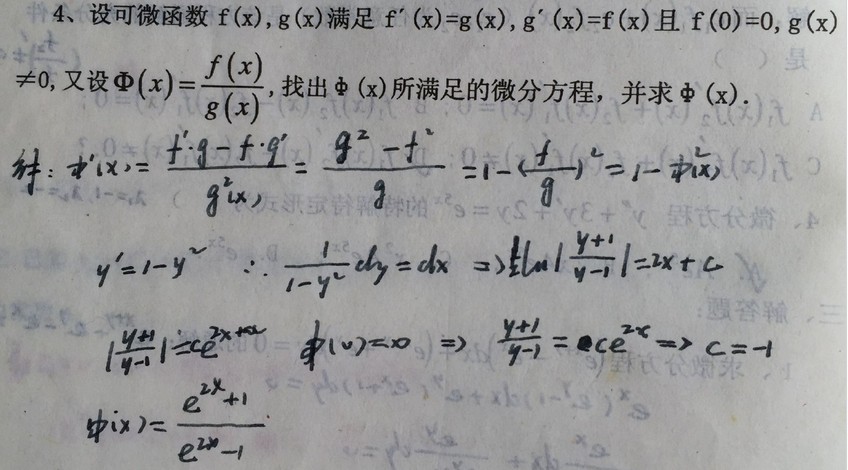 4、设可微函数 f(x), g(x)满足 f′(x)=g(x), g′(x)=f(x)且 f(0)=0, g(x)
≠0, 又设Φ(x)=f(x)/g(x), 找出Φ(x)所满足的微分方程，并求Φ(x).
解: Φ′(x)=(f′·g-f·g′)/g²(x)=(g²-f²)/g=1-(f/g)²=1-Φ²(x)
y′=1-y² ∴ 1/(1-y²)dy=dx ⇒ ½ln|(y+1)/(y-1)|=2x+c
|(y+1)/(y-1)|=ce^{2x} Φ(0)=0 ⇒ (y+1)/(y-1)=ce^{2x} ⇒ c=-1
Φ(x)=(e^{2x}+1)/(e^{2x}-1)